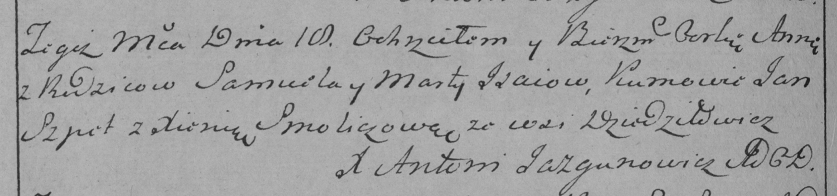 Tegiż Mca Dnia 18. Ochrzciłem y Bierzm: Corkę Annę
z Rodzicow Samuela y Marty Isaiow, Kumowie Jan
Szpet z Xienią Smoliczową ze wsi Dziedziłowicz
X Antoni Jazgunowicz